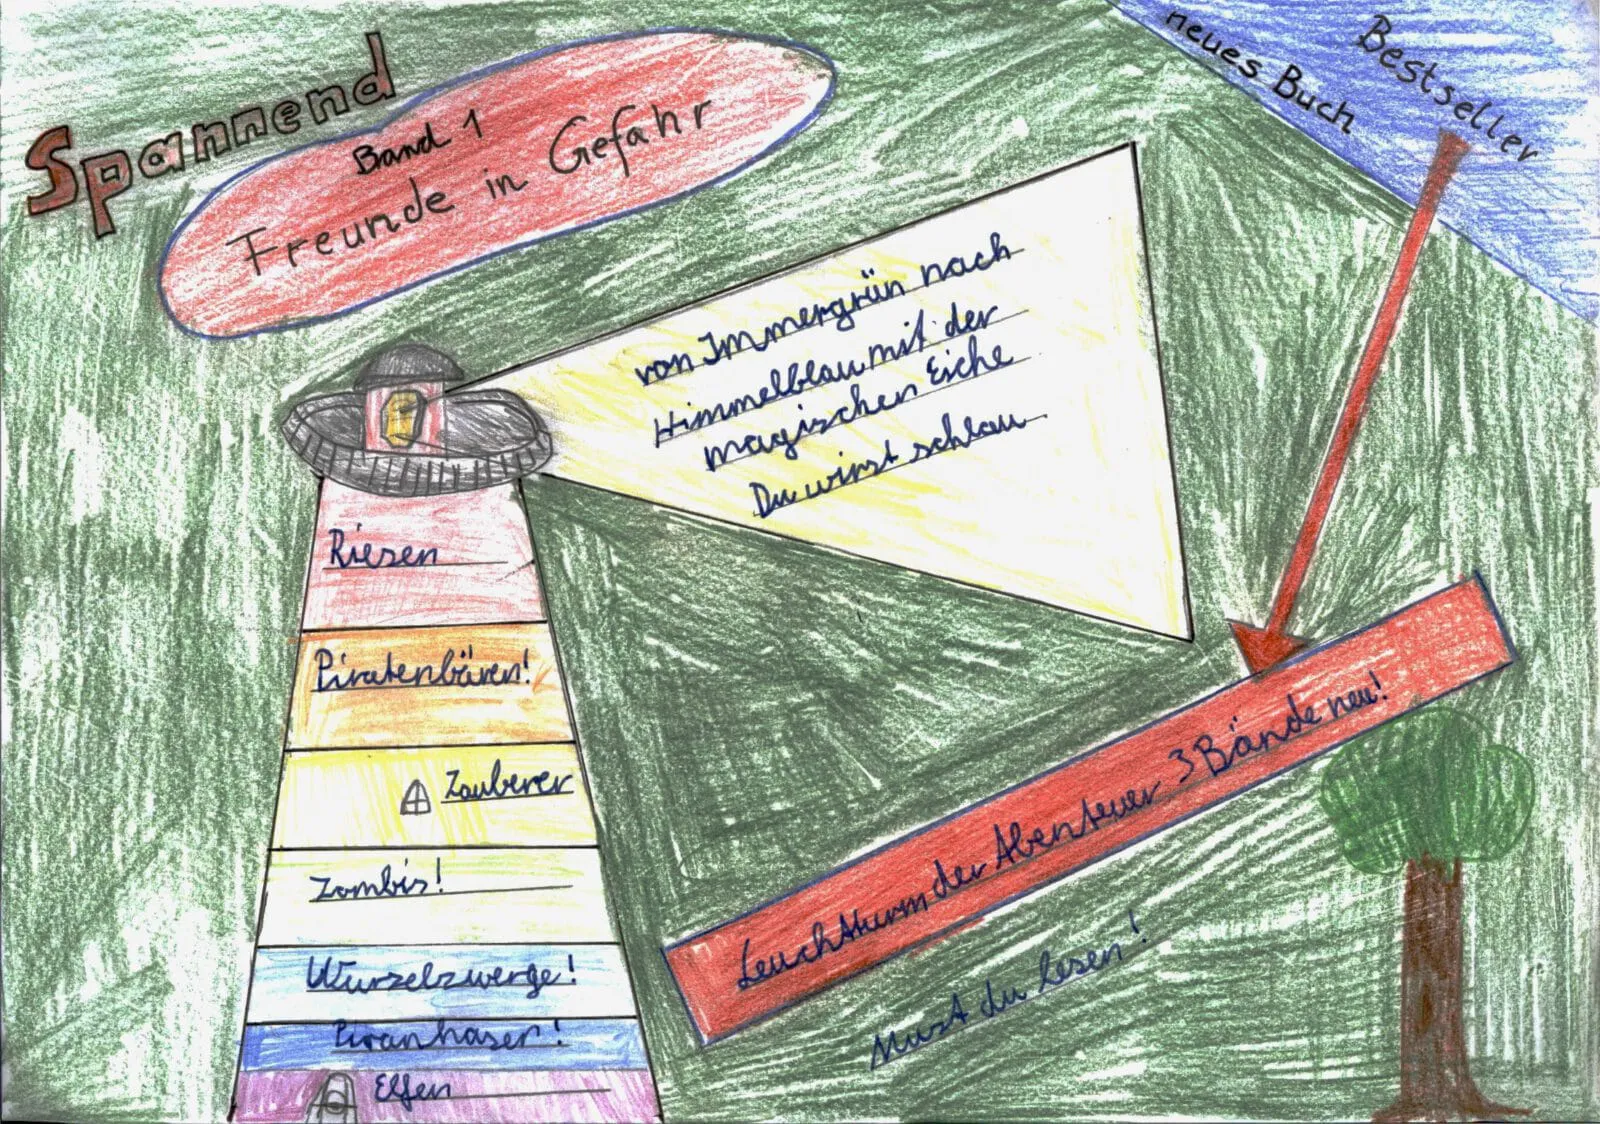 Spannend
Band 1
Freunde in Gefahr
neues Buch
Bestseller
von Immergrün nach
Himmelblau mit der
magischen Eiche
Du wirst schlau
Riesen
Piratenbären!
Zauberer
Zombis!
Wurzelzwerge!
Piranhaser!
Elfen
Leuchtturm der Abenteuer 3 Bände neu!
Must du lesen!